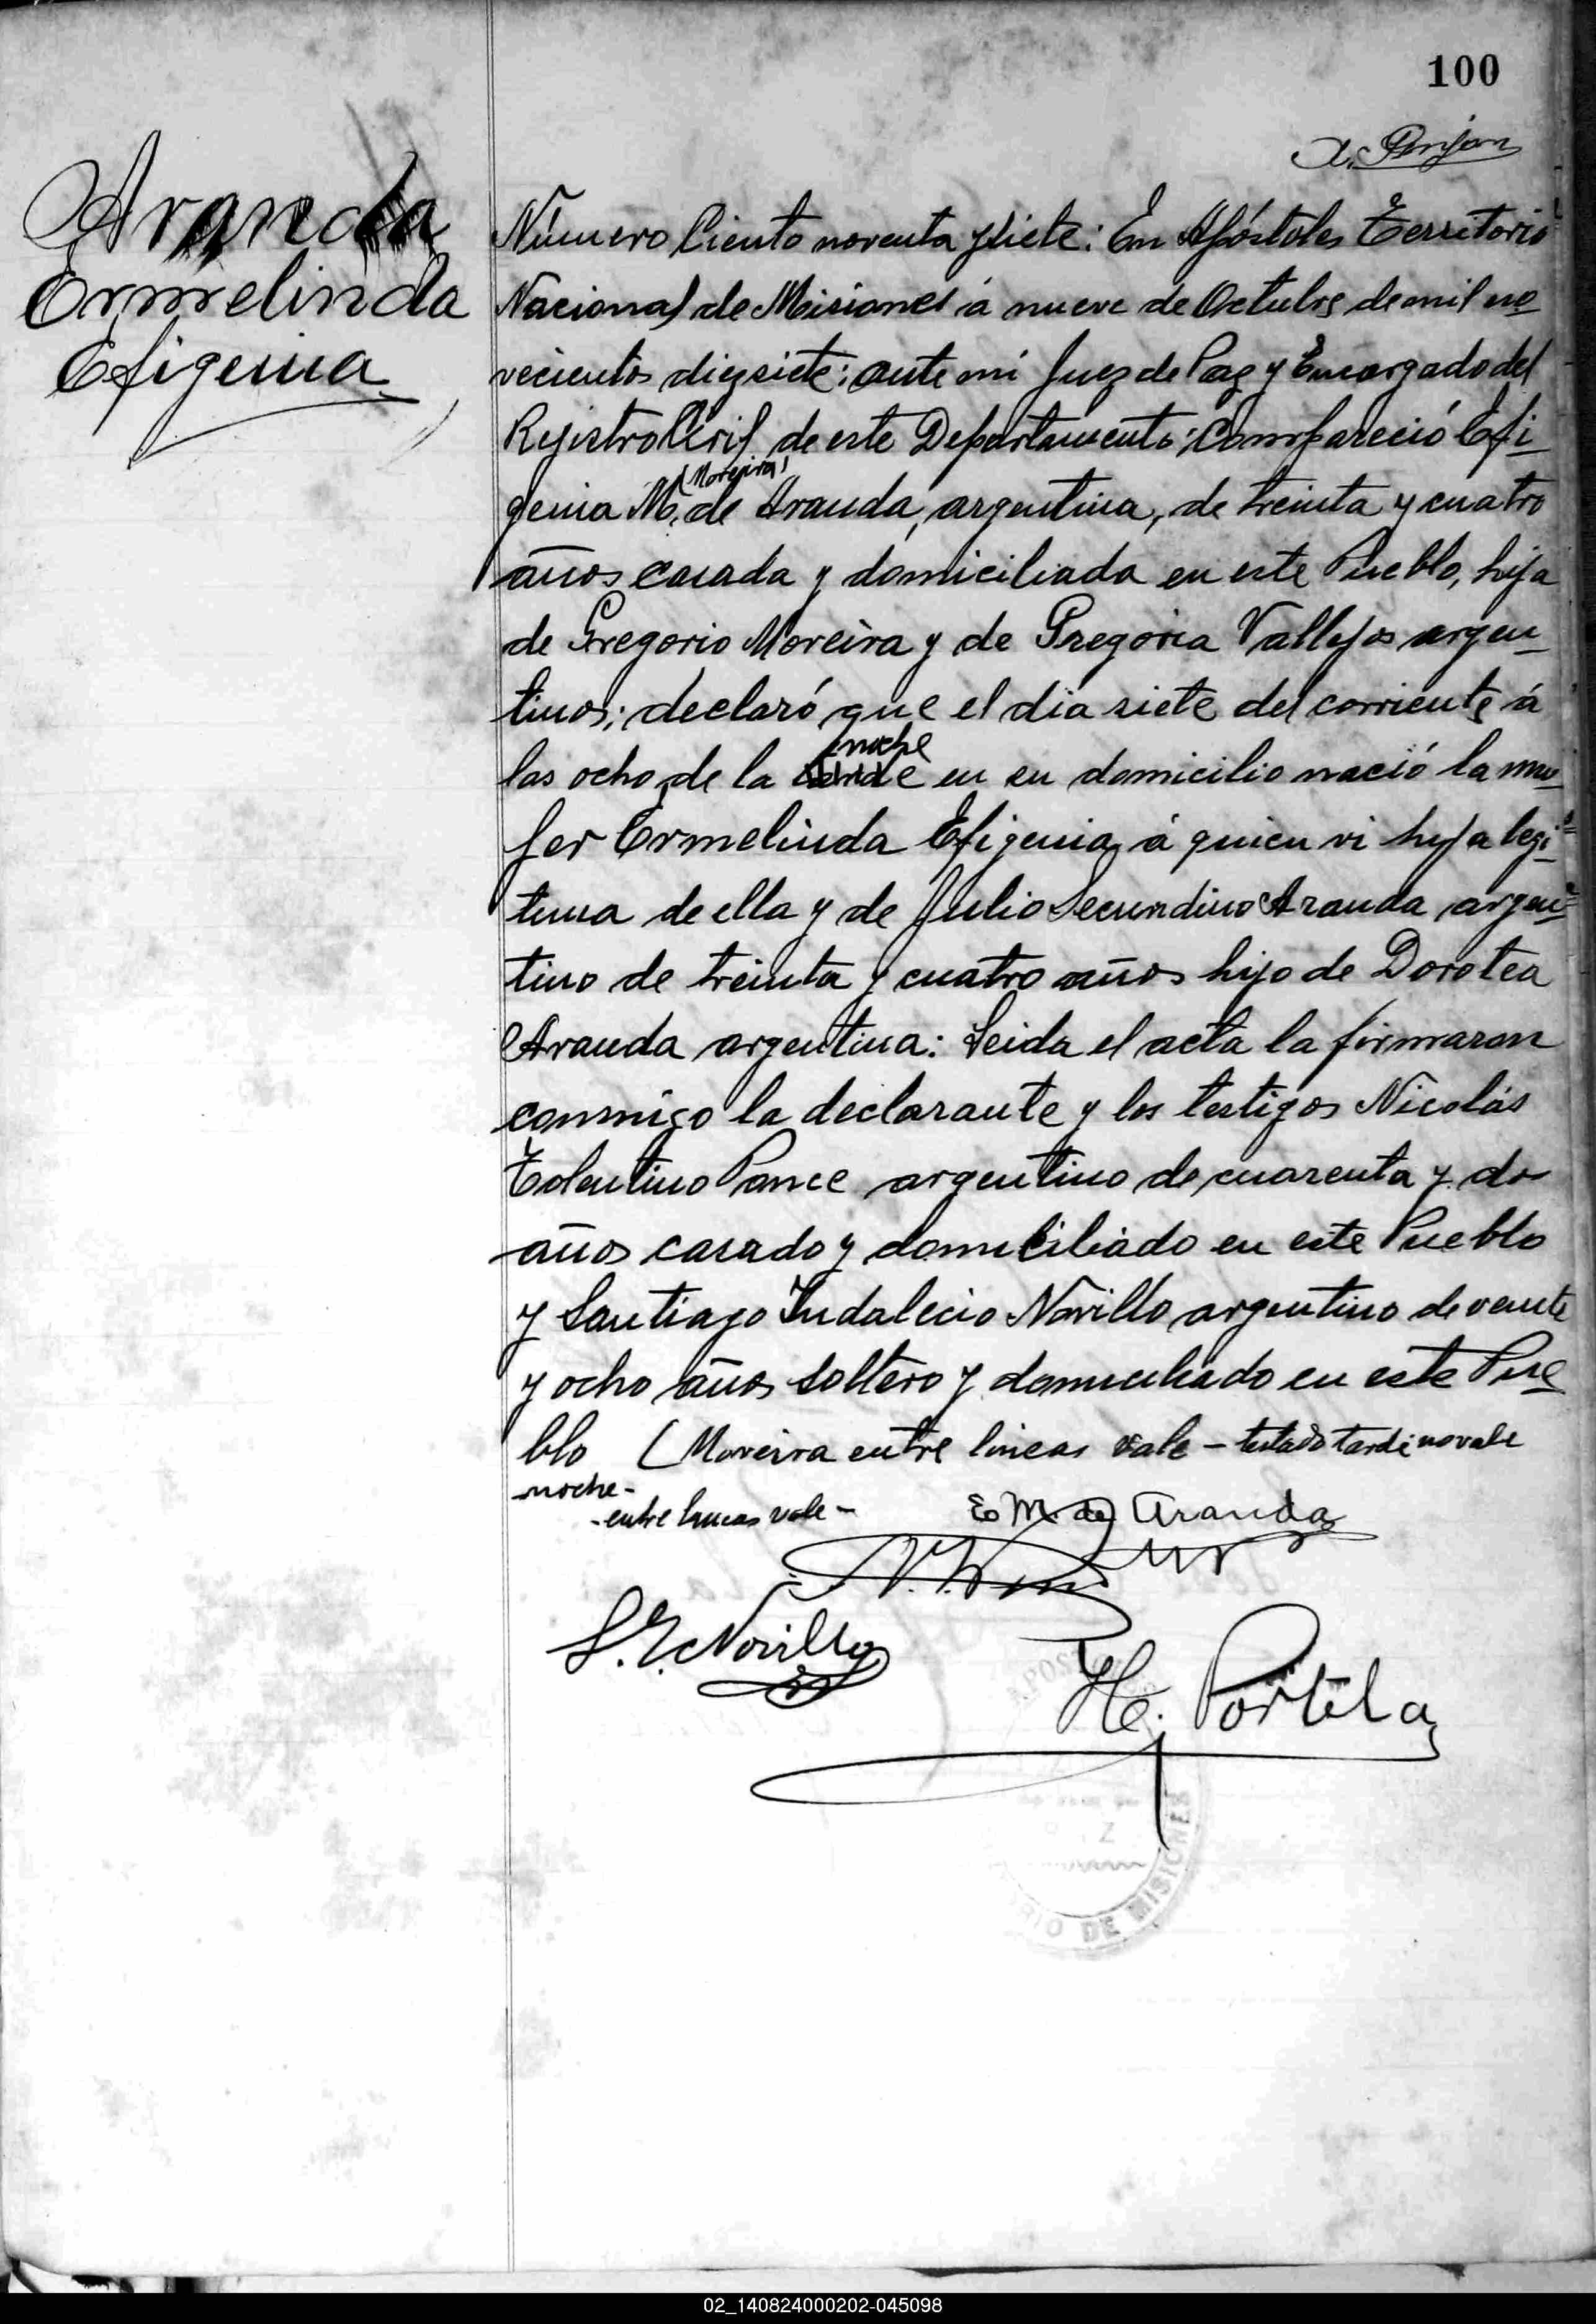 100
Aranda
Ermelinda
Efigenia
Número Ciento noventa y siete: En Apóstoles Territorio
Nacional de Misiones á nueve de Octubre de mil no-
vecientos diezsiete: ante mí Juez de Paz y Encargado del
Rejistro Civil de este Departamento: Compareció Efi-
(Moreira)
genia M. de Aranda, argentina, de treinta y cuatro
años casada y domiciliada en este Pueblo, hija
de Gregorio Moreira y de Gregoria Vallejos argen-
tinos; declaró que el dia siete del corriente á
noche
las ocho de la tarde en su domicilio nació la mu-
jer Ermelinda Efigenia á quien vi hija legi-
tima de ella y de Julio Secundino Aranda argen-
tino de treinta y cuatro años hijo de Dorotea
Aranda argentina: Leida el acta la firmaron
conmigo la declarante y los testigos Nicolás
Tolentino Ponce argentino de cuarenta y dos
años casado y domiciliado en este Pueblo
y Santiago Indalecio Novillo argentino de veinte
y ocho años soltero y domiciliado en este Pue-
blo (Moreira entre lineas vale - testado tarde no vale
noche -
- entre lineas vale -
E M. de Aranda
S. I. Novillo
H. Portela
RIO DE MISIONES
02_140824000202-045098